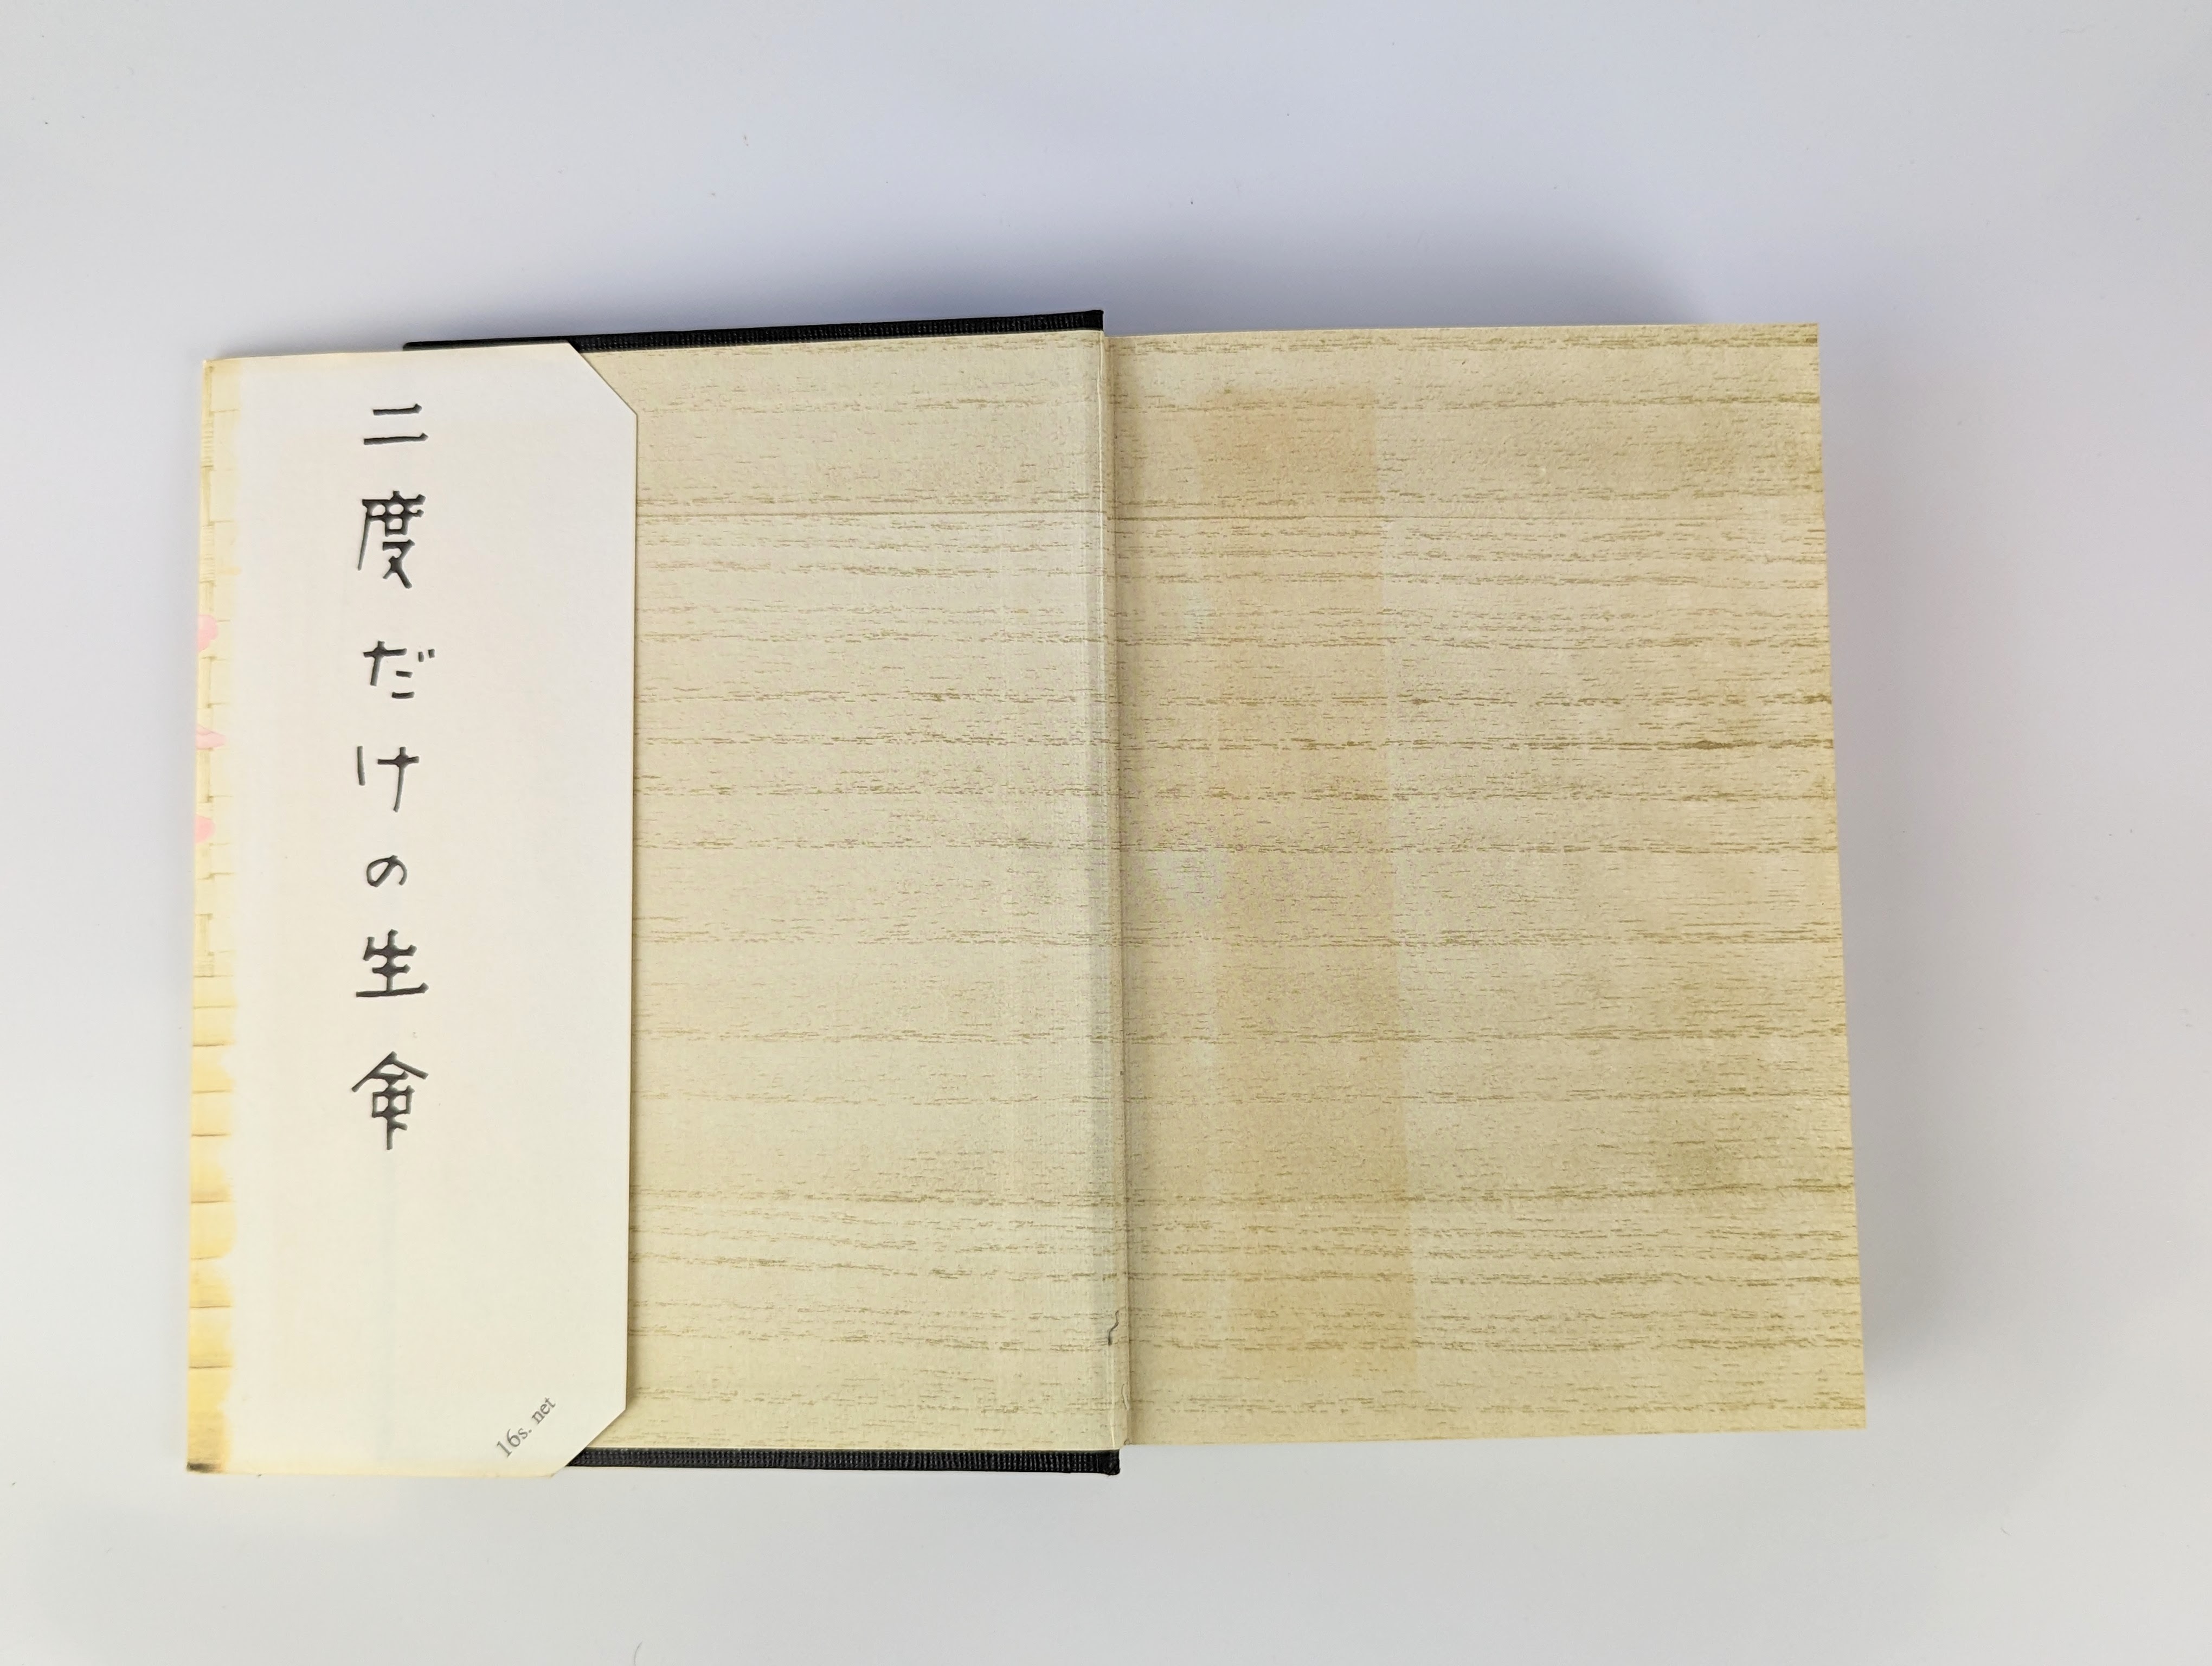 二度だけの生命
16s. net